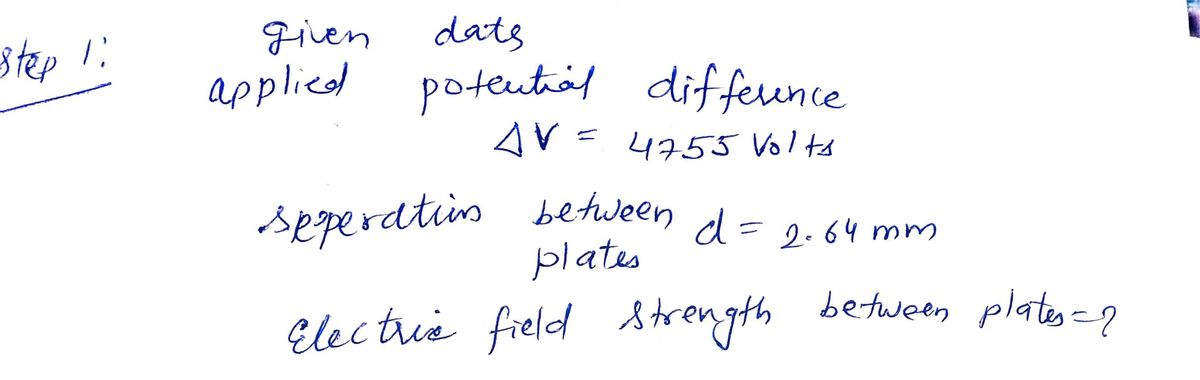 Step 1: given data
applied potential difference
ΔV = 4755 Volts
seperation between d = 2.64 mm
plates
Electric field strength between plates = ?